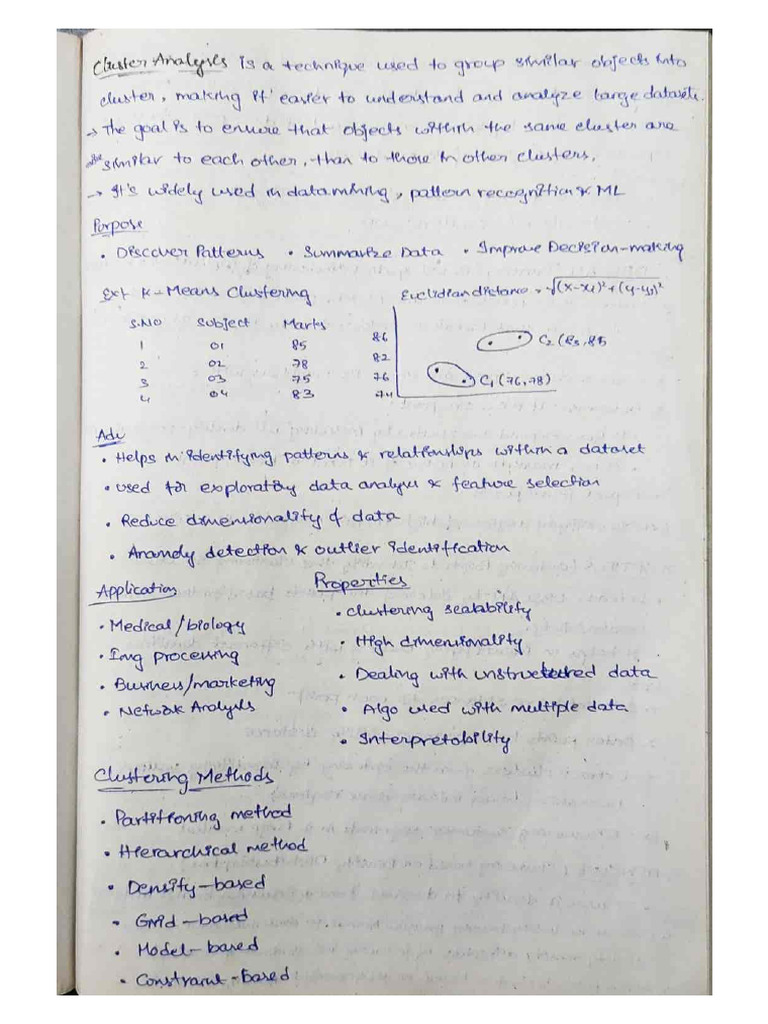 Cluster Analysis is a technique used to group similar objects into
cluster, making it easier to understand and analyze large datasets.
→ The goal is to ensure that objects within the same cluster are
similar to each other, than to those in other clusters.
→ It's widely used in data mining, pattern recognition & ML
Purpose
• Discover Patterns • Summarize Data • Improve Decision-making
Ex: K-Means Clustering
Euclidian distance = √(x-x1)²+(y-y1)²
S.NO Subject Marks
1 01 85 86
2 02 78 82
3 03 75 76
4 04 83 74
C2 (83, 85
C1 (76, 78)
Adv
• Helps in identifying patterns & relationships within a dataset
• used for exploratory data analysis & feature selection
• Reduce dimensionality of data
• Anamoly detection & outlier identification
Application
• Medical/biology
• Img processing
• Business/marketing
• Network Analysis
Properties
• Clustering scalability
• High dimensionality
• Dealing with unstructured data
• Algo used with multiple data
• Interpretability
Clustering Methods
• Partitioning method
• Hierarchical method
• Density-based
• Grid-based
• Model-based
• Constraint-based